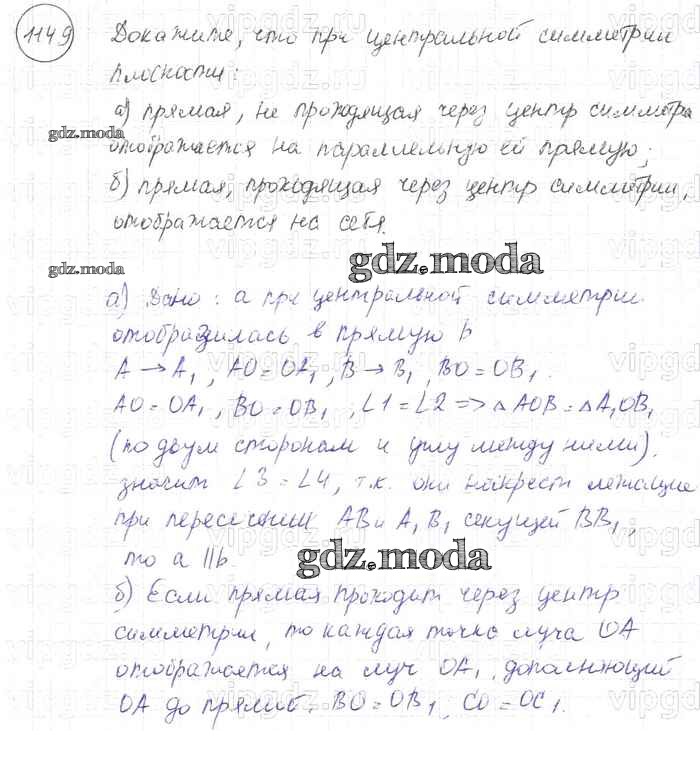 1149 Докажите, что при центральной симметрии
плоскости:
а) прямая, не проходящая через центр симметрии
gdz.moda
отображается на параллельную ей прямую;
б) прямая, проходящая через центр симметрии,
отображается на себя.
gdz.moda gdz.moda
а) Дано: a при центральной симметрии
отобразилась в прямую b
A → A₁, AO = OA₁, B → B₁, BO = OB₁.
AO = OA₁, BO = OB₁, ∠1 = ∠2 => △AOB = △A₁OB₁
(по двум сторонам и углу между ними).
значит ∠3 = ∠4, т.к. они накрест лежащие
при пересечении AB и A₁B₁ секущей BB₁,
то a || b.
gdz.moda
б) Если прямая проходит через центр
симметрии, то каждая точка луча OA
отображается на луч OA₁, дополняющий
OA до прямой. BO = OB₁, CO = OC₁.